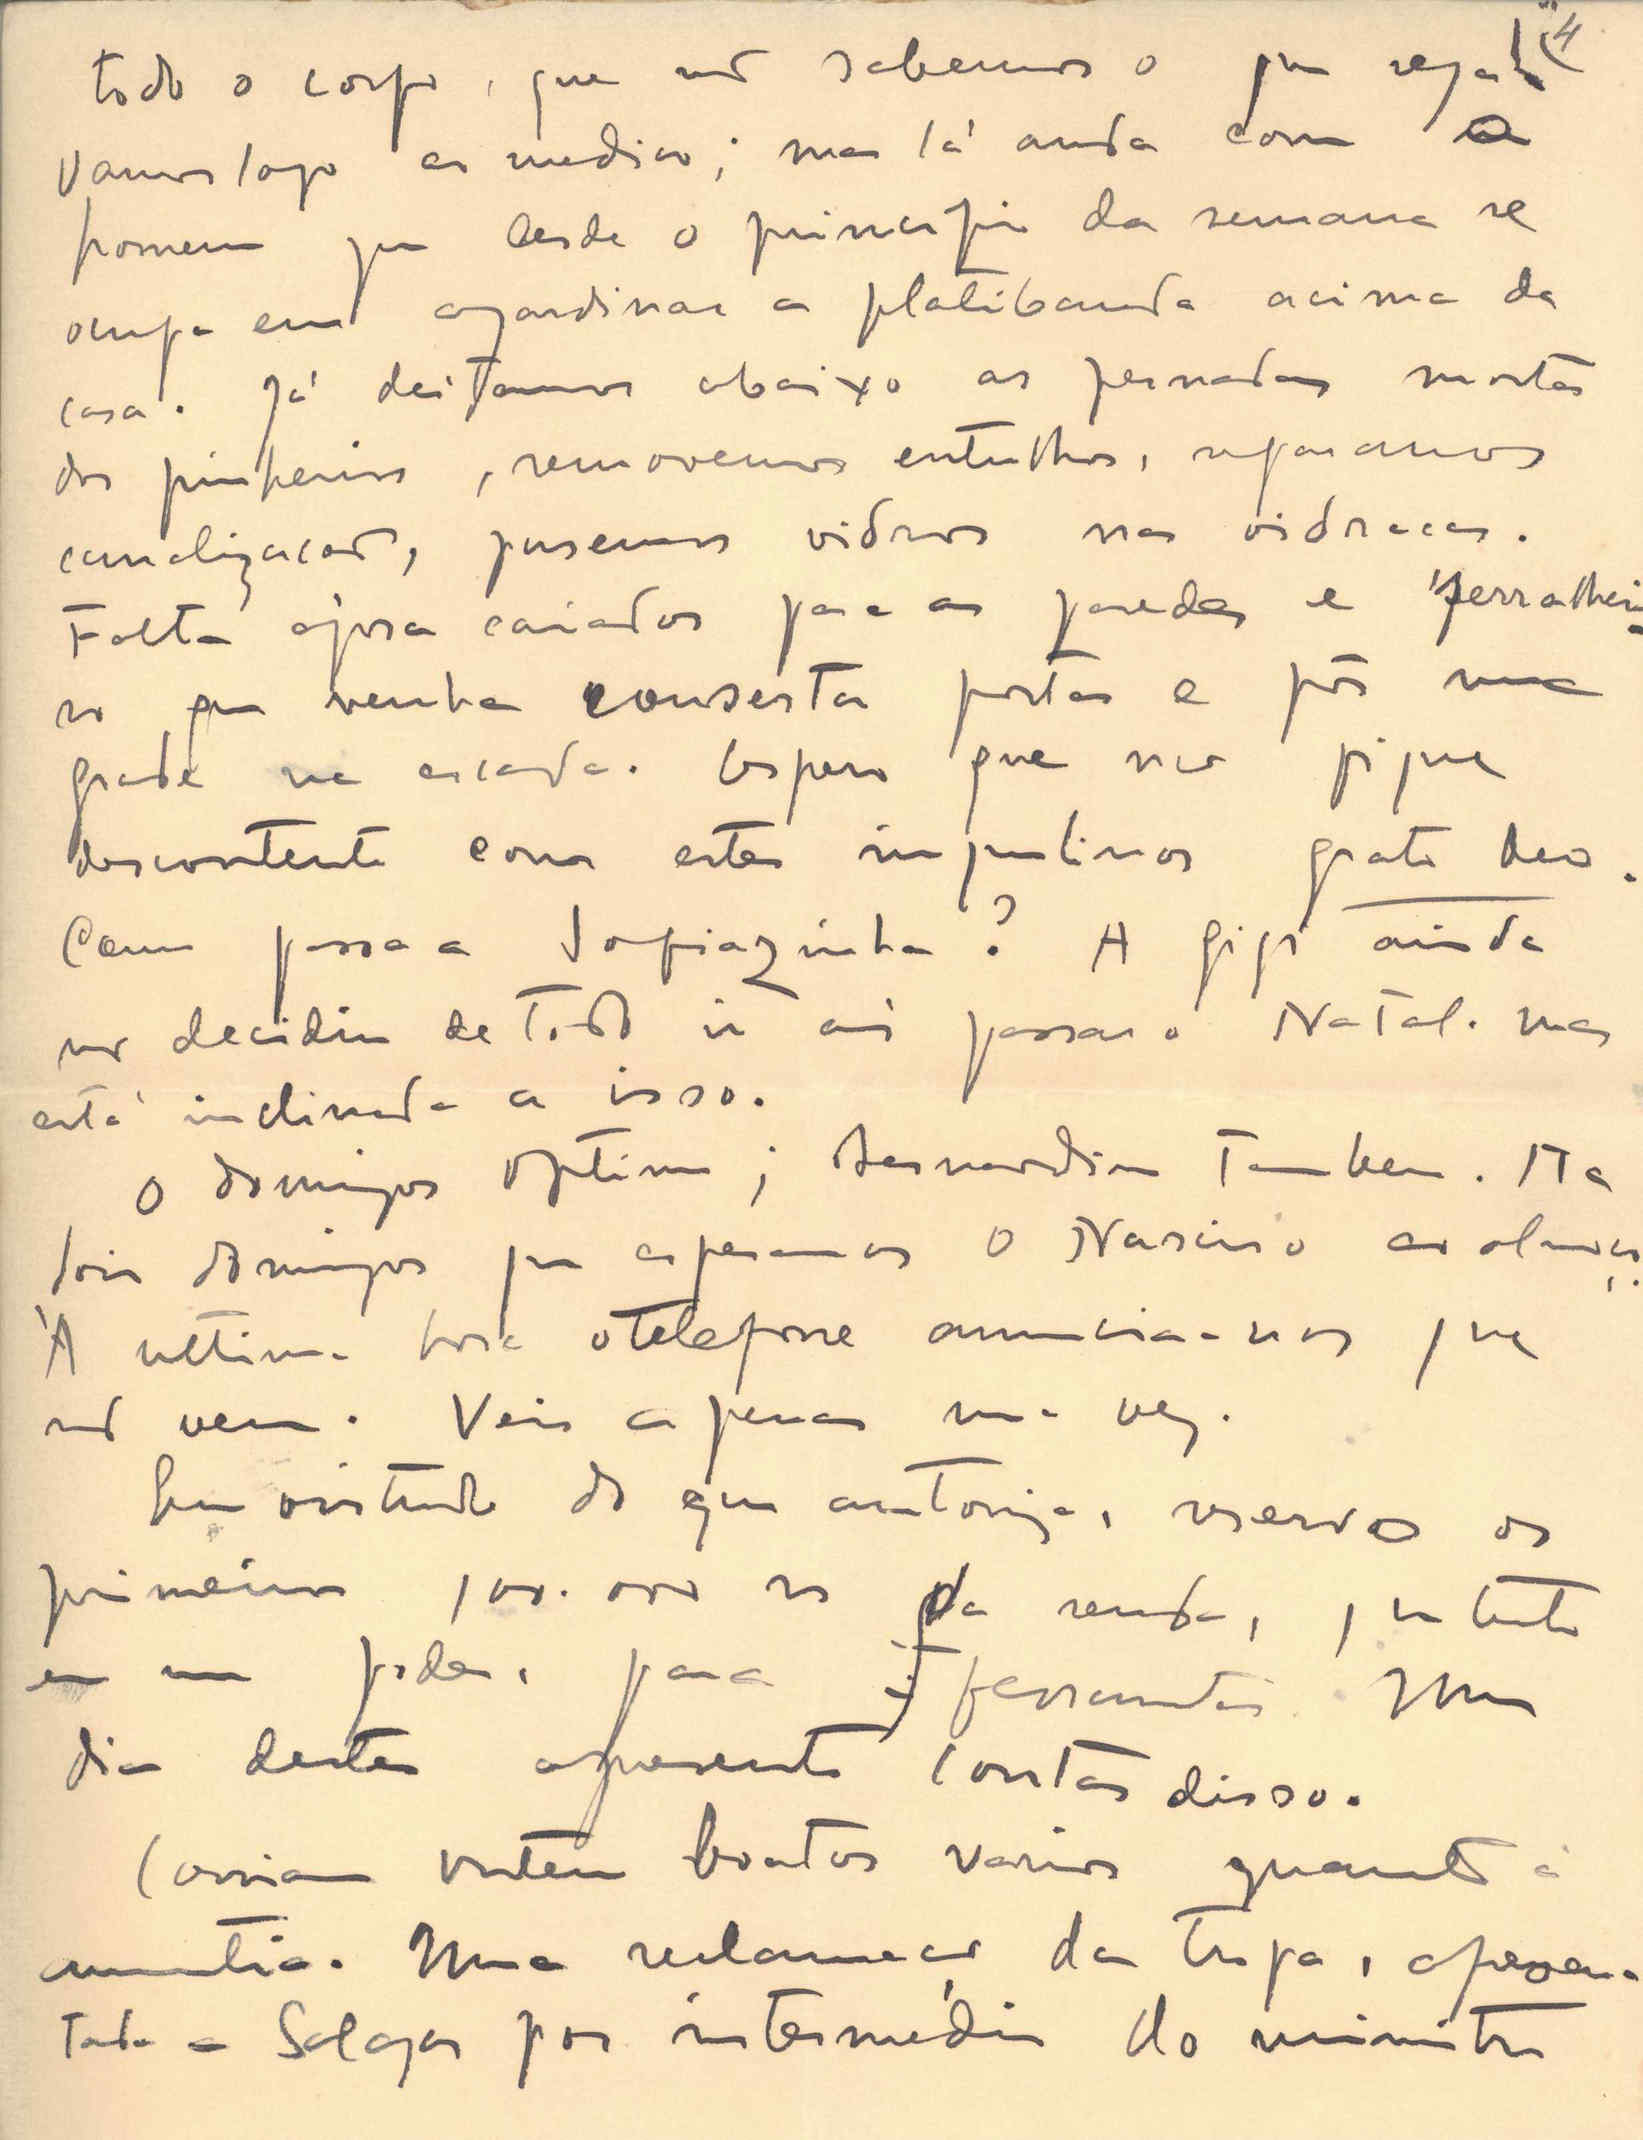 4
todo o corpo, que não sabemos o que seja.
Vamos logo ao medico; mas lá anda com o
homem que desde o principio da semana se
ocupa em ajardinar a platibanda acima da
casa. Já deitamos abaixo as pernadas mortas
dos pinheiros, removemos entulhos, reparamos
canalizacao, pusemos vidros nas vidracas.
Falta agora caiador para as paredes e serralhei-
ro que venha consertar portas e pôr uma
grade na escada. Espero que não fique
descontente com estes inquilinos grato deo.
Como passa a Sofiazinha? A Gigi ainda
não decidiu de todo ir aí passar o Natal. mas
está inclinada a isso.
O domingos optimo; Bernardino tambem. Ha
dois domingos que esperamos o Narciso ao almoço.
À ultima hora o telefone anuncia-nos que
não vem. Veio apenas uma vez.
Em virtude do que autoriza, reservo os
primeiros 100.000 rs da renda, que tenho
em meu poder, para ferramentas. Um
dia destes apresento contas disso.
Corriam ontem boatos varios quanto á
amnistia. Uma reclamação da tropa, apresen-
tada a Salazar por intermedio do ministro